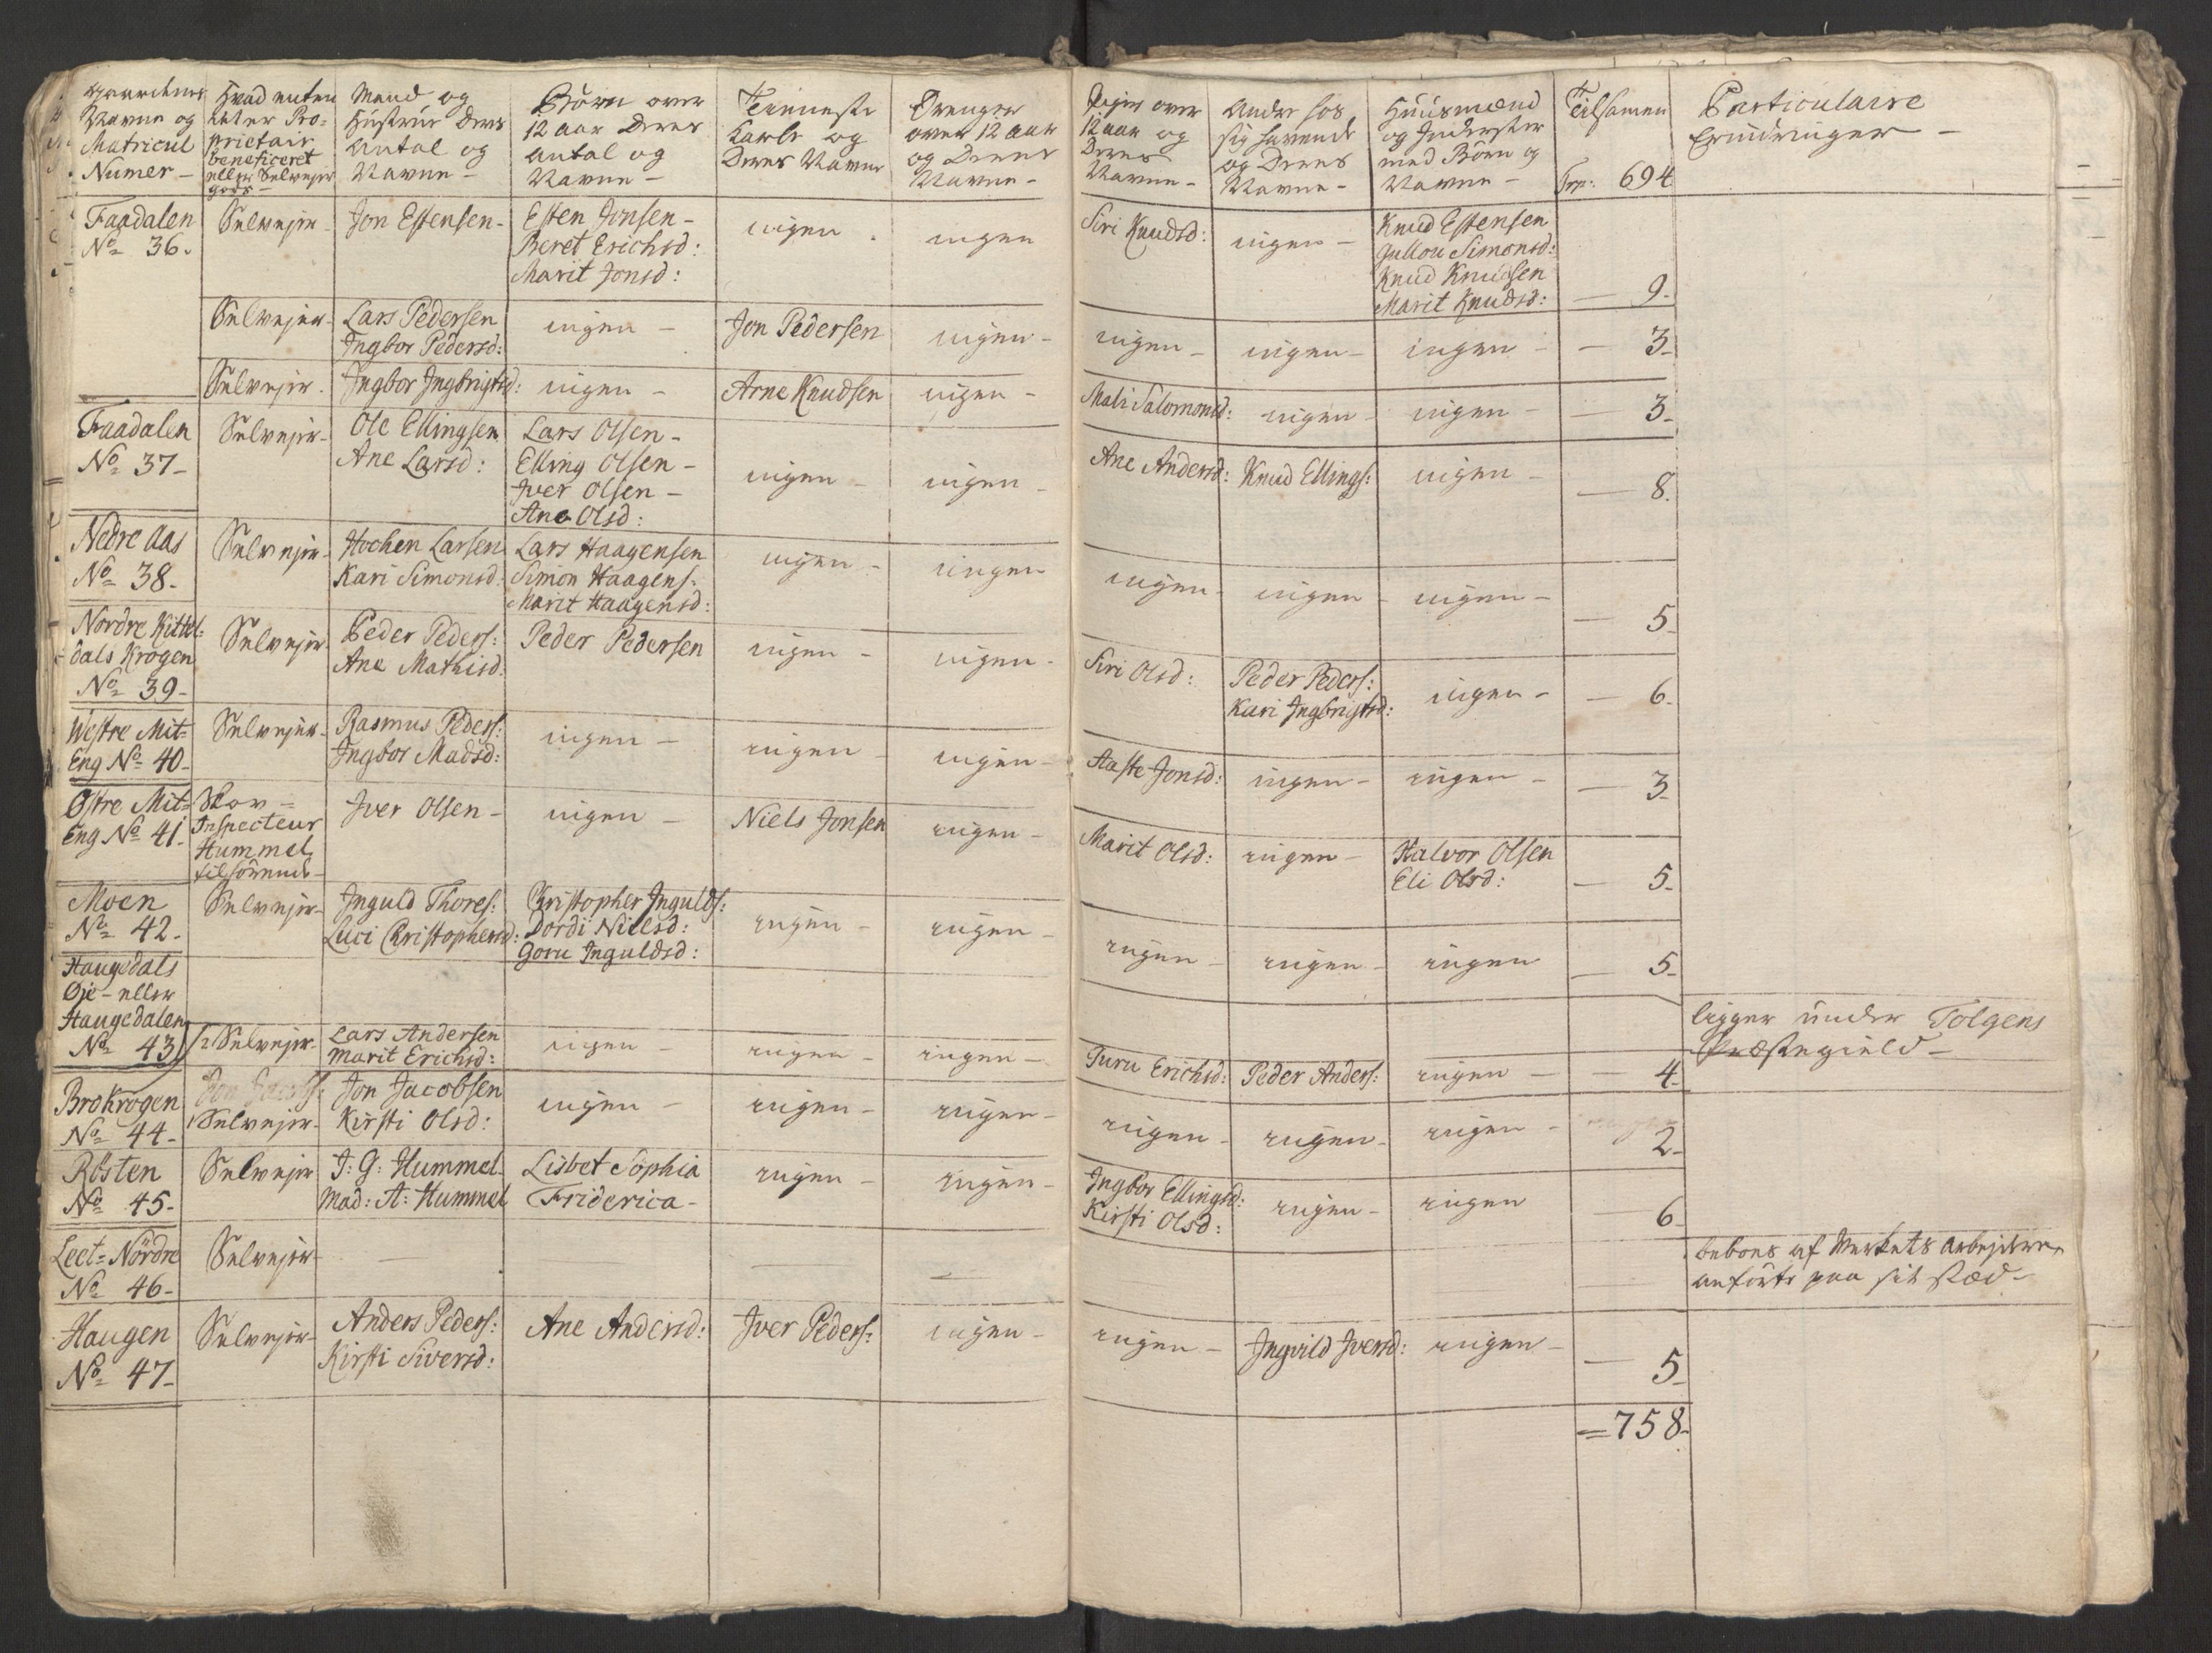 Gaardenes Navne og Matricul Numer -
Hvad enten det er Proprietair beneficeret eller Selvejer gods -
Mand og Hustrue Deres Antal og Navne -
Börn over 12 aar Deres Antal og Navne -
Tienneste Karle og Deres Navne
Drenge over 12 aar og Deres Navne -
Piger over 12 aar og Deres Navne -
Andre hos sig havende og Deres Navne -
Huusmænd og Inderster med Börn og Navne -
Tilsamen
Trp: 694
Particulaire Erindringer -
Faadalen No 36.
Selvejer Jon Estensen - Esten Jonsen - ingen . ingen Siri Knudsd: ingen - Knud Estensen
Beret Erichsd: Gullou Simonsd:
Marit Jonsd: Knud Knudsen
Marit Knudsd: - 9 -
Selvejer - Lars Pedersen ingen - Jon Pedersen ingen - ingen - ingen - ingen - - 3 -
Ingbor Pedersd:
Selvejer . Ingbor Ingbrigtsd: ingen - Arne Knudsen ingen - Mali Salomonsd: ingen - ingen - - 3 -
Faadalen No 37 -
Selvejer - Ole Ellingsen Lars Olsen - ingen - ingen - Ane Andersd: Knud Ellings: ingen - - 8.
Ane Larsd: Elling Olsen -
Iver Olsen -
Ane Olsd:
Nedre Aas No 38 -
Selvejer - Hochen Larsen Lars Haagensen ingen - ingen ingen - ingen - ingen - - 5 -
Kari Simonsd: Simon Haagens:
Marit Haagensd:
Nordre Kittel:
dals Krogen
No 39 -
Selvejer - Peder Peders: Peder Pedersen ingen - ingen - Siri Olsd: Peder Peders: ingen - - 6 -
Ane Mathisd: Kari Ingbrigtsd:
Westre Mit=
Eng No 40 -
Selvejer - Rasmus Peders: ingen - ingen - ingen - Aaste Jonsd: ingen - ingen - - 3 -
Ingbor Madsd:
Østre Mit=
Eng No 41 -
Skov = Inspecteur Hummel tilhörende -
Iver Olsen - ingen - Niels Jonsen ingen - Marit Olsd: ingen - Halvor Olsen - 5 -
Eli Olsd:
Moen No 42 -
Selvejer - Inguld Thores: Christopher Ingulds: ingen - ingen - ingen - ingen - ingen - 5 -
Luci Christophersd: Dordi Nielsd:
Goru Inguldsd:
Haugedals
Øje - eller
Haugedalen
No 43
ligger under Tolgens
Præstegield -
Selvejer - Lars Andersen ingen - ingen - ingen - Guru Erichsd: Peder Anders: ingen - - 4 -
Marit Erichsd:
Brokrogen No 44 -
Selvejer - Jon Jacobsen ingen - ingen - ingen - ingen - ingen - ingen - 2 -
Kirsti Olsd:
Rösten No 45 -
Selvejer J: G: Hummel Lisbet Sophia ingen - ingen - Ingbor Ellingsd: ingen - ingen - 6 -
Mad: A: Hummel Friderica - Kirsti Olsd:
Leet = Nördre No 46 -
Selvejer -
beboes af Werkets Arbejdere
anförte paa sit stæd -
Haugen No 47 -
Selvejer - Anders Peders: Ane Andersd: Iver Peders: ingen - ingen - Ingvild Iversd: ingen - - 5 -
Kirsti Siversd:
= 758 -